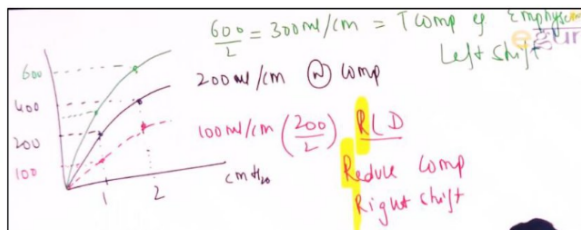 600/2 = 300ml/cm = ↑ Comp of Emphysem
Left shift
egur
200ml/cm (N) Comp
100ml/cm (200/2) RLD
Reduce Comp
Right shift
600
400
200
100
1 2
cmH20